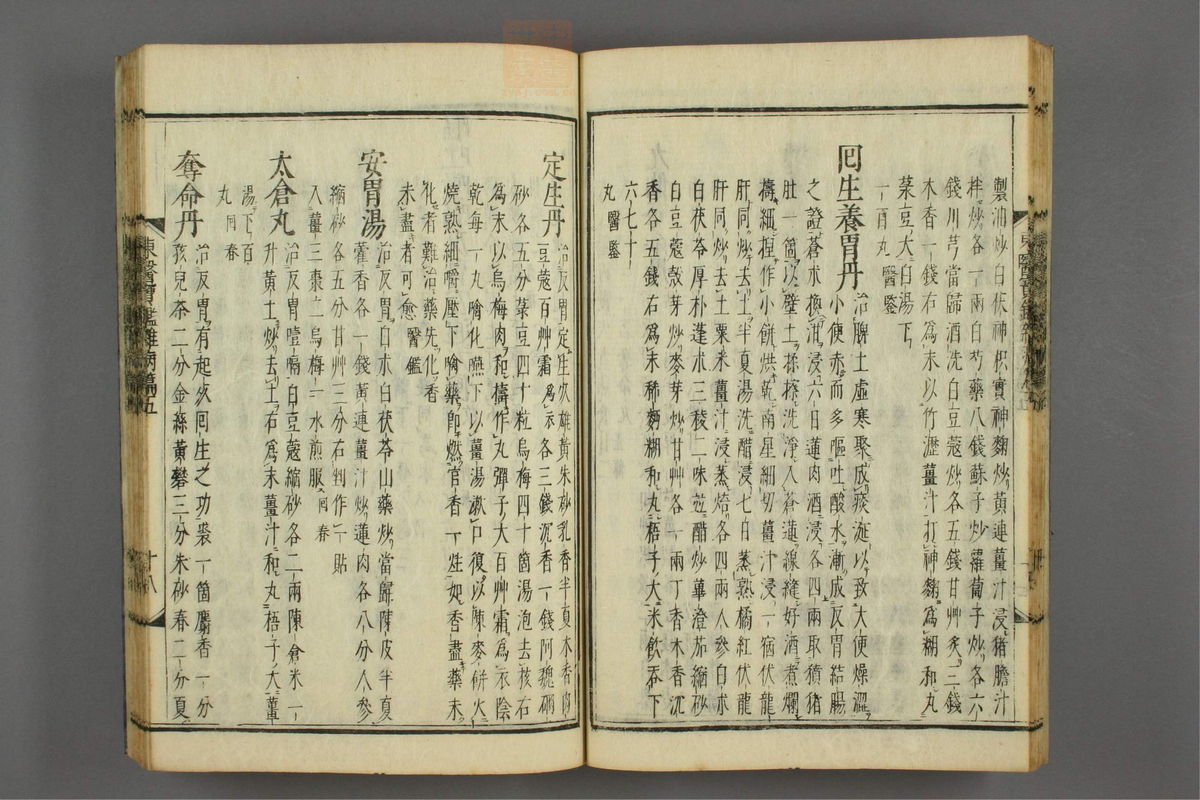 製浦炒白茯神枳實神麴炒黃連薑汁浸猪膽汁
拌炒各一兩白芍藥八錢蘇子炒蘿蔔子炒各六
錢川芎當歸酒洗白豆蔻炒各五錢甘艸炙三錢
木香一錢右爲末以竹瀝薑汁打神麴爲糊和丸
菉豆大白湯下
一百丸醫鑒
回生養胃丹治脾土虛寒聚成痰涎以致大便燥澀
小便赤而多嘔吐酸水漸成反胃結腸
之證蒼朮換泔浸六日蓮肉酒浸各四兩取猪猪
肚一箇以壁土揉擦洗淨入蒼蓮線縫好酒煮爛
擣細捏作小餅烘乾南星細切薑汁浸一宿伏龍
肝同炒去土半夏湯洗醋浸七日蒸熟橘紅伏龍
肝同炒去土粟米薑汁浸蒸焙各四兩人參白朮
白茯苓厚朴蓬朮三稜二味並醋炒蓽澄茄縮砂
白豆蔻穀芽炒麥芽炒甘艸各一兩丁香木香沉
香各五錢右爲末稀麪糊和丸梧子大米飮吞下
六七十
丸醫鑒
定生丹治反胃定生次雄黃朱砂乳香半夏木香肉
豆蔻百艸霜爲衣各三錢沉香一錢阿魏硇
砂各五分菉豆四十粒烏梅四十箇湯泡去核右
爲末以烏梅肉和擣作丸彈子大百艸霜爲衣陰
乾每一丸噙化嚥下以薑湯漱口復以陳麥餅火
燒熟細嚼壓下噙藥卽燃官香一炷如香盡藥未
化者難治藥先化香
未盡者可愈醫鑑
安胃湯治反胃白朮白茯苓山藥炒當歸陳皮半夏
藿香各一錢黃連薑汁炒蓮肉各八分人參
縮砂各五分甘艸三分右剉作一貼
入薑三棗二烏梅一水煎服回春
太倉丸治反胃噎嗝白豆蔻縮砂各二兩陳倉米一
升黃土炒去土右爲末薑汁和丸梧子大薑
湯下百
丸回春
奪命丹治反胃有起次回生之功裘一箇麝香一分
孩兒茶二分金絲黃礬三分朱砂春二分夏
東醫寶鑑雜病篇五
十八